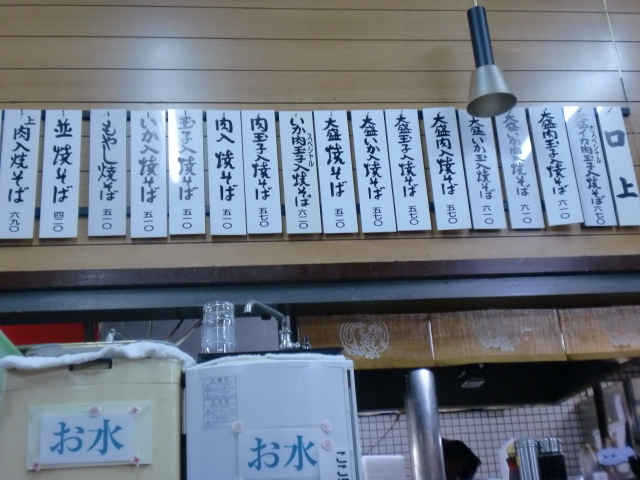 口上
大盛イカ肉玉子入焼そば 六七〇
スペシャル
大盛肉玉子入焼そば 六一〇
大盛いか肉入焼そば 六一〇
大盛いか玉入焼そば 六一〇
大盛肉入焼そば 五七〇
大盛玉子入焼そば 五七〇
大盛いか入焼そば 五七〇
大盛焼そば 五一〇
いか肉玉子入焼そば 六二〇
スペシャル
肉玉子入焼そば 五七〇
肉入焼そば 五一〇
玉子入焼そば 五一〇
いか入焼そば 五一〇
もやし焼そば 五一〇
並焼そば 四二〇
上肉入焼そば 六九〇
お水
お水
ここ